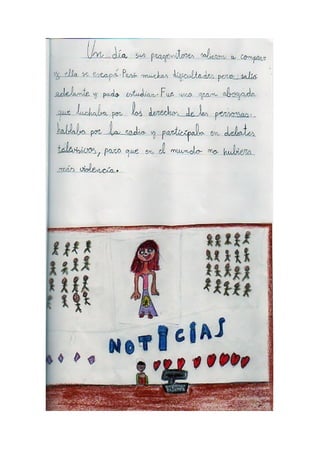 Un día sus progenitores salieron a comprar
y ella se escapó. Pasó muchas dificultades pero salió
adelante y pudo estudiar. Fue una gran abogada
que luchaba por los derechos de las personas.
hablaba por la radio y participaba en debates
televisivos, para que en el mundo no hubiera
más violencia.
NOTICIAS